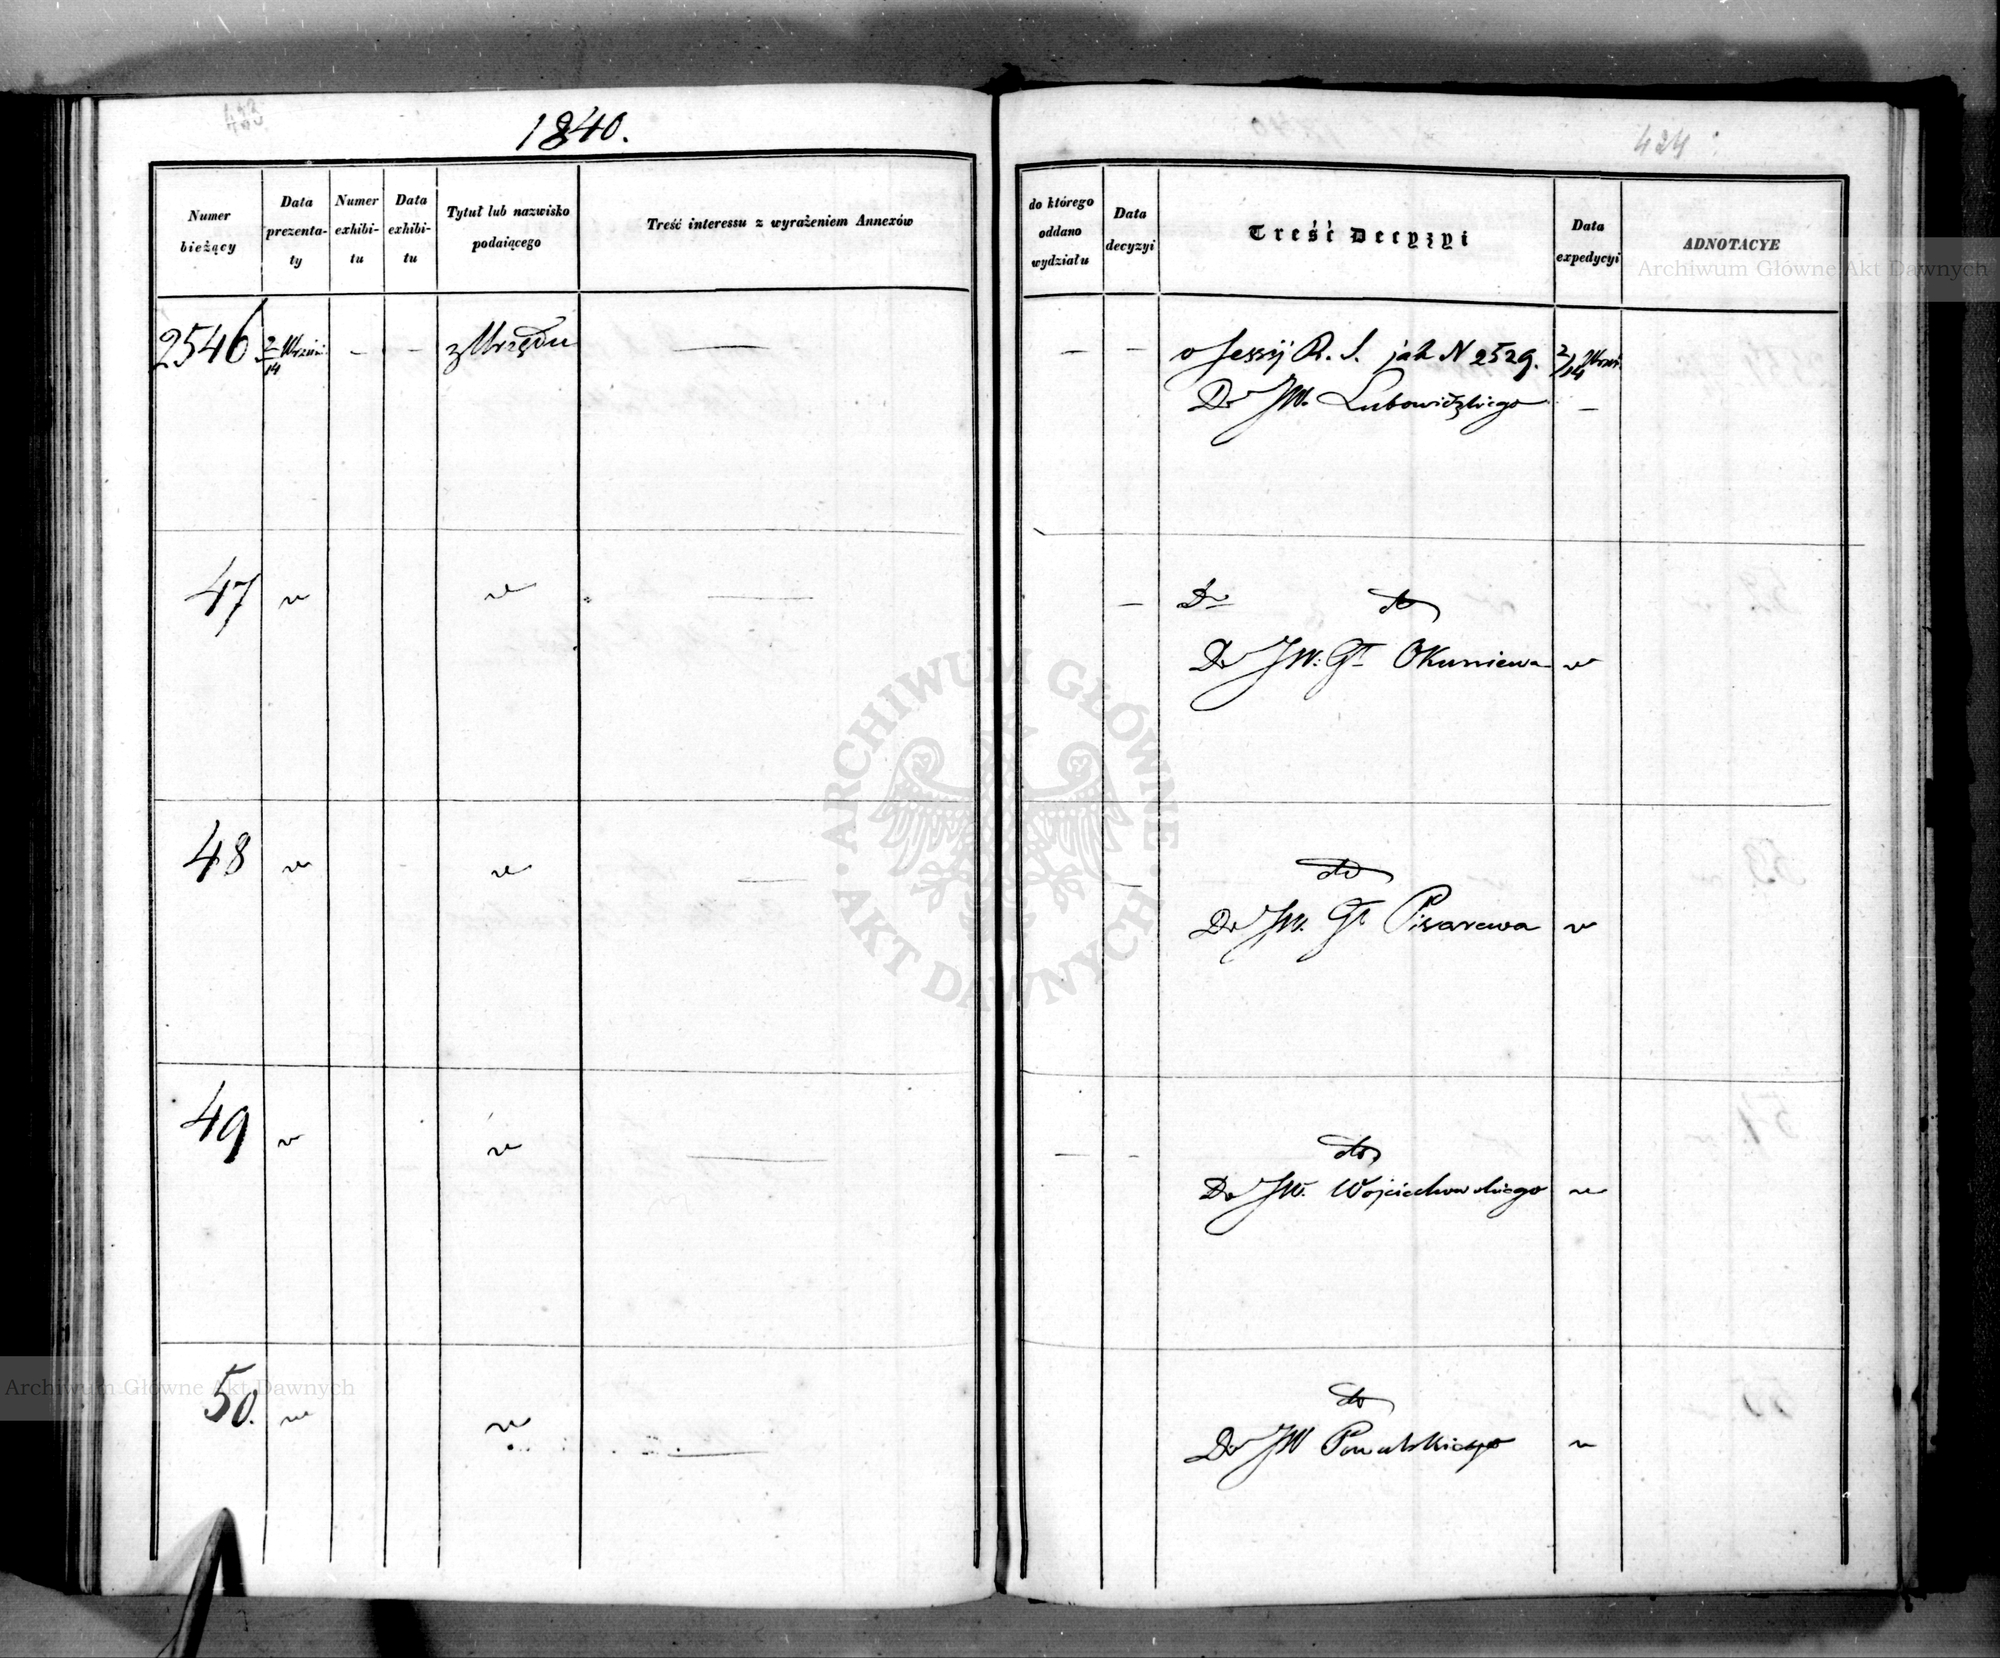 1840.
424
Numer bieżący
Data prezenta-ty
Numer exhibi-tu
Data exhibi-tu
Tytuł lub nazwisko podaiącego
Treść interessu z wyrażeniem Annexów
do którego oddano wydziału
Data decyzyi
Treść Decyzyi
Data expedycyi
ADNOTACYE
2546 2/14 Wrześ. - - z Urzędu — - - o Sessyj R. S. jak N 2529. 2/14 Wrześ.
Do JW. Lubowidzkiego -
47 " " — - Do dto
Do JW: Gł Okuniewa "
48 " " — - dto
Do JW. Gł Pisarewa "
49 " " — - - dto
Do JW. Wojciechowskiego "
50. " " — dto
Do JW Powalskiego "
Archiwum Główne Akt Dawnych
Archiwum Główne Akt Dawnych
ARCHIWUM GŁÓWNE · AKT DAWNYCH ·